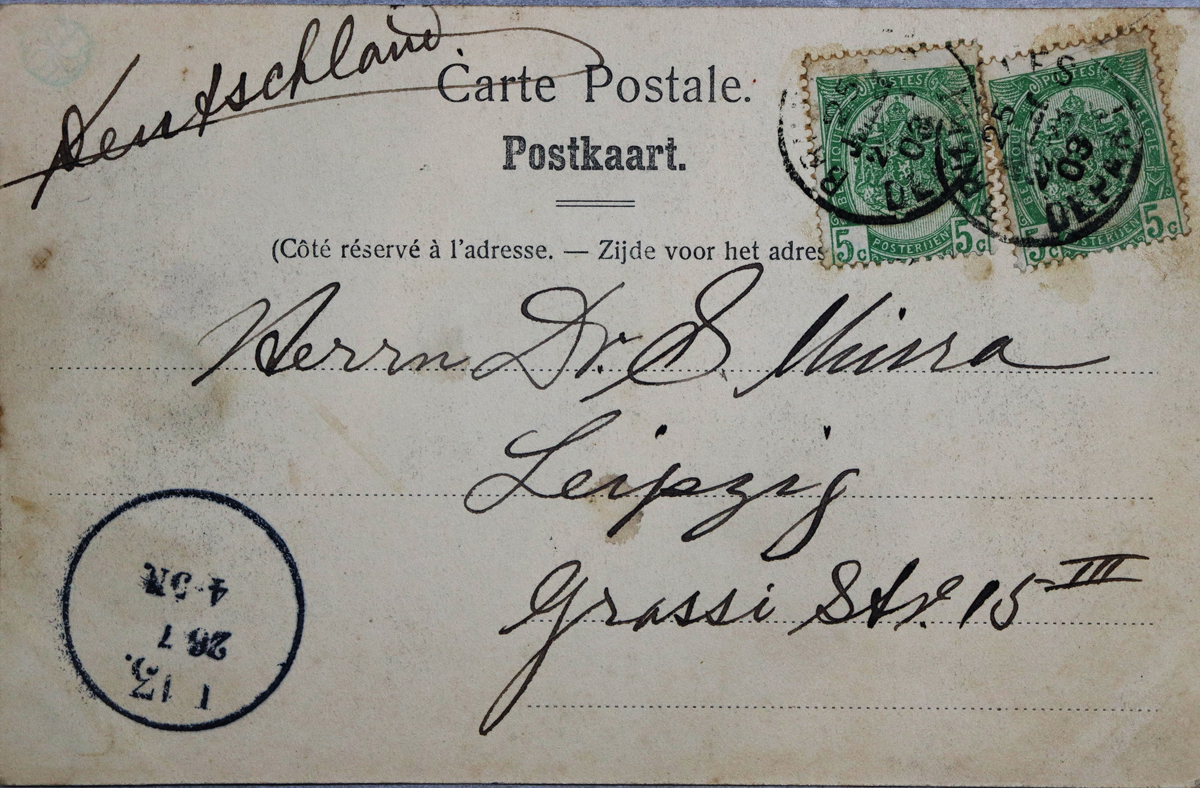 Deutschland.
Carte Postale.
Postkaart.
(Côté réservé à l'adresse. — Zijde voor het adres
POSTES
5c POSTERIJEN 5c
POSTES
BELGIQUE BELGIË
5c POSTERIJEN 5c
25
03
DEPART
Herrn Dr. S. Miura
Leipzig
Grassi Str. 15 III
26 7